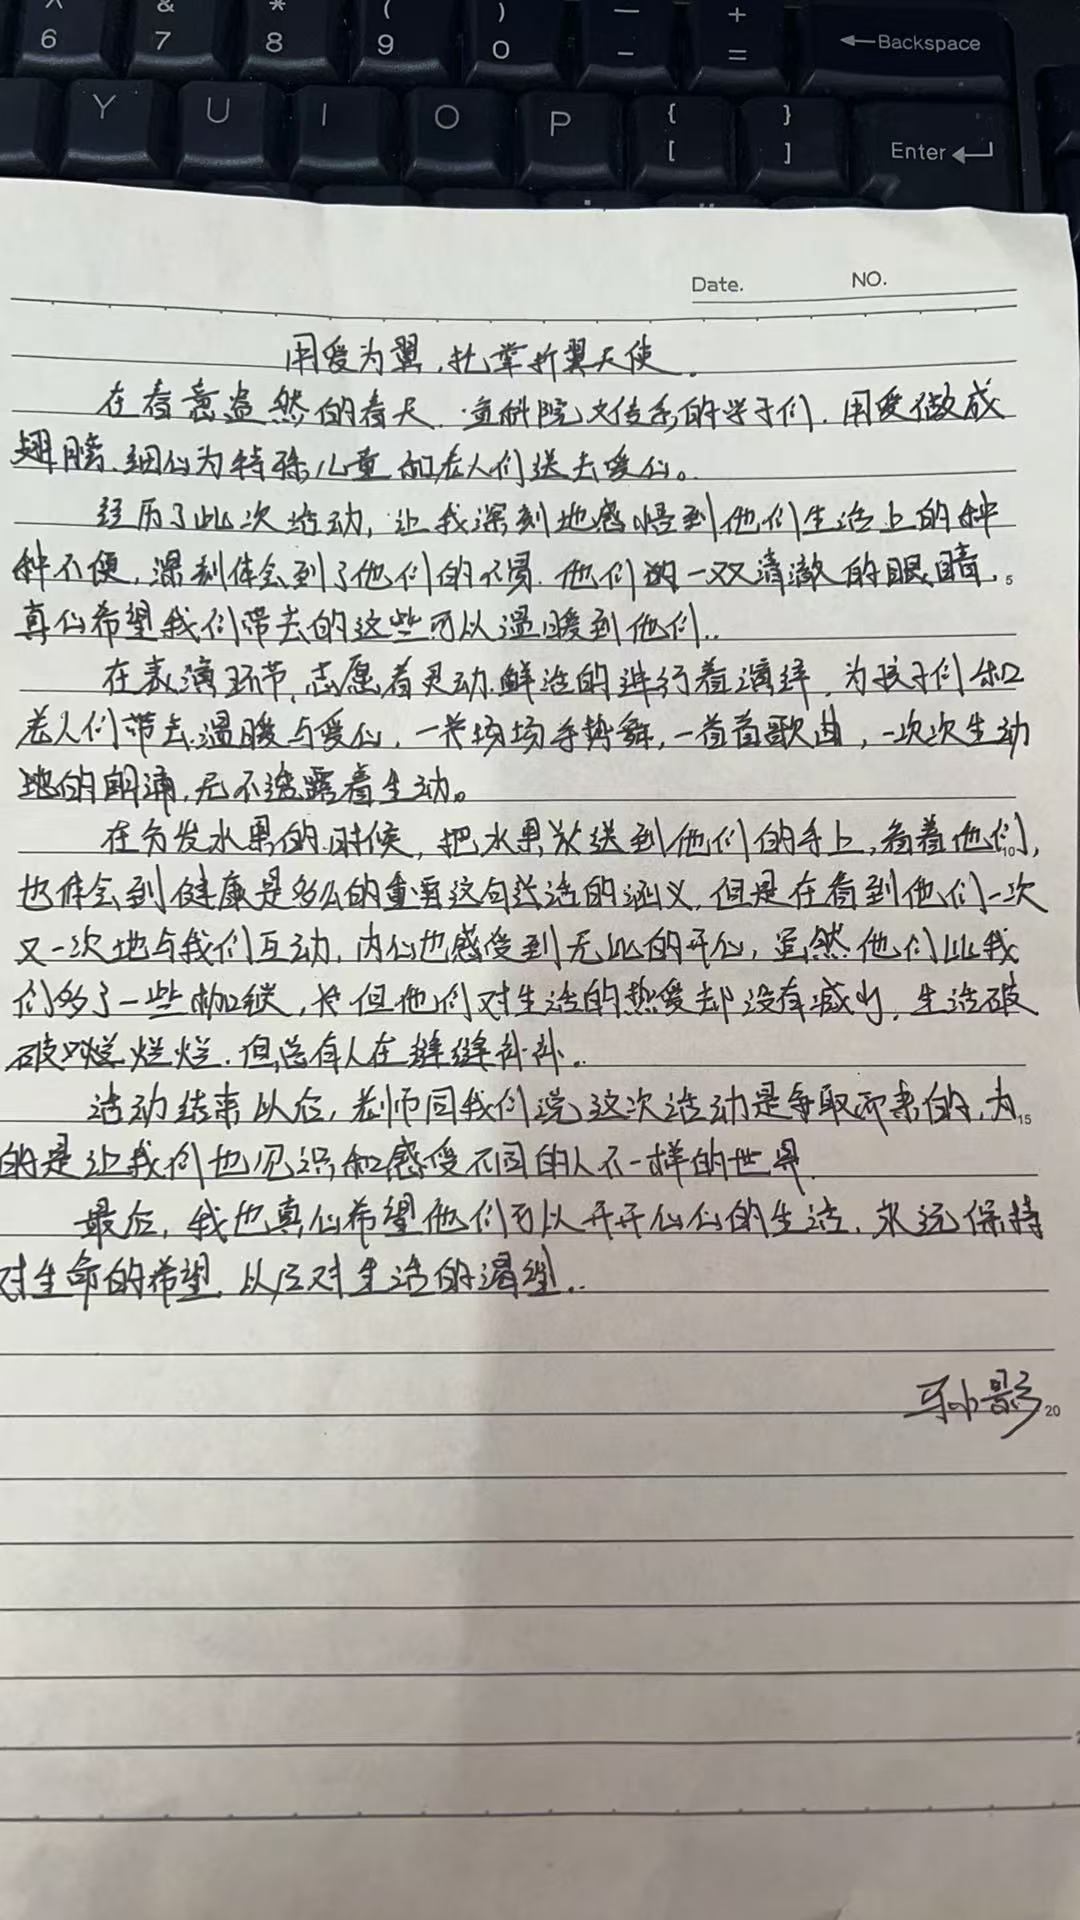 ^ & * ( ) — +
6 7 8 9 0 - = Backspace
Y U I O P { }
[ ] Enter
Date. NO.
用爱为翼,托掌折翼天使.
在春意盎然的春天.重科院文传系的学子们.用爱做成
翅膀.细心为特殊儿童和老人们送去爱心。
经历了此次活动,让我深刻地感悟到他们生活上的种
种不便,深刻体会到了他们的不易.他们的一双清澈的眼睛.
5
真心希望我们带去的这些可以温暖到他们..
在表演环节,志愿者灵动.鲜活的进行着演绎.为孩子们和
老人们带去温暖与爱心,一场场手势舞,一首首歌曲,一次次生动
地的朗诵,无不透露着生动。
在分发水果的时候,把水果送到他们的手上,看着他们,
10
也体会到健康是多么的重要这句话的涵义.但是在看到他们一次
又一次地与我们互动,内心也感受到无比的开心,虽然他们比我
们多了一些枷锁,但他们对生活的热爱却没有减少,生活破
破烂烂.但总有人在缝缝补补..
活动结束以后,老师同我们说这次活动是争取而来的,为
15
的是让我们也见识和感受不同的人不一样的世界.
最后,我也真心希望他们可以开开心心的生活.永远保持
对生命的希望.以及对生活的渴望..
影
20